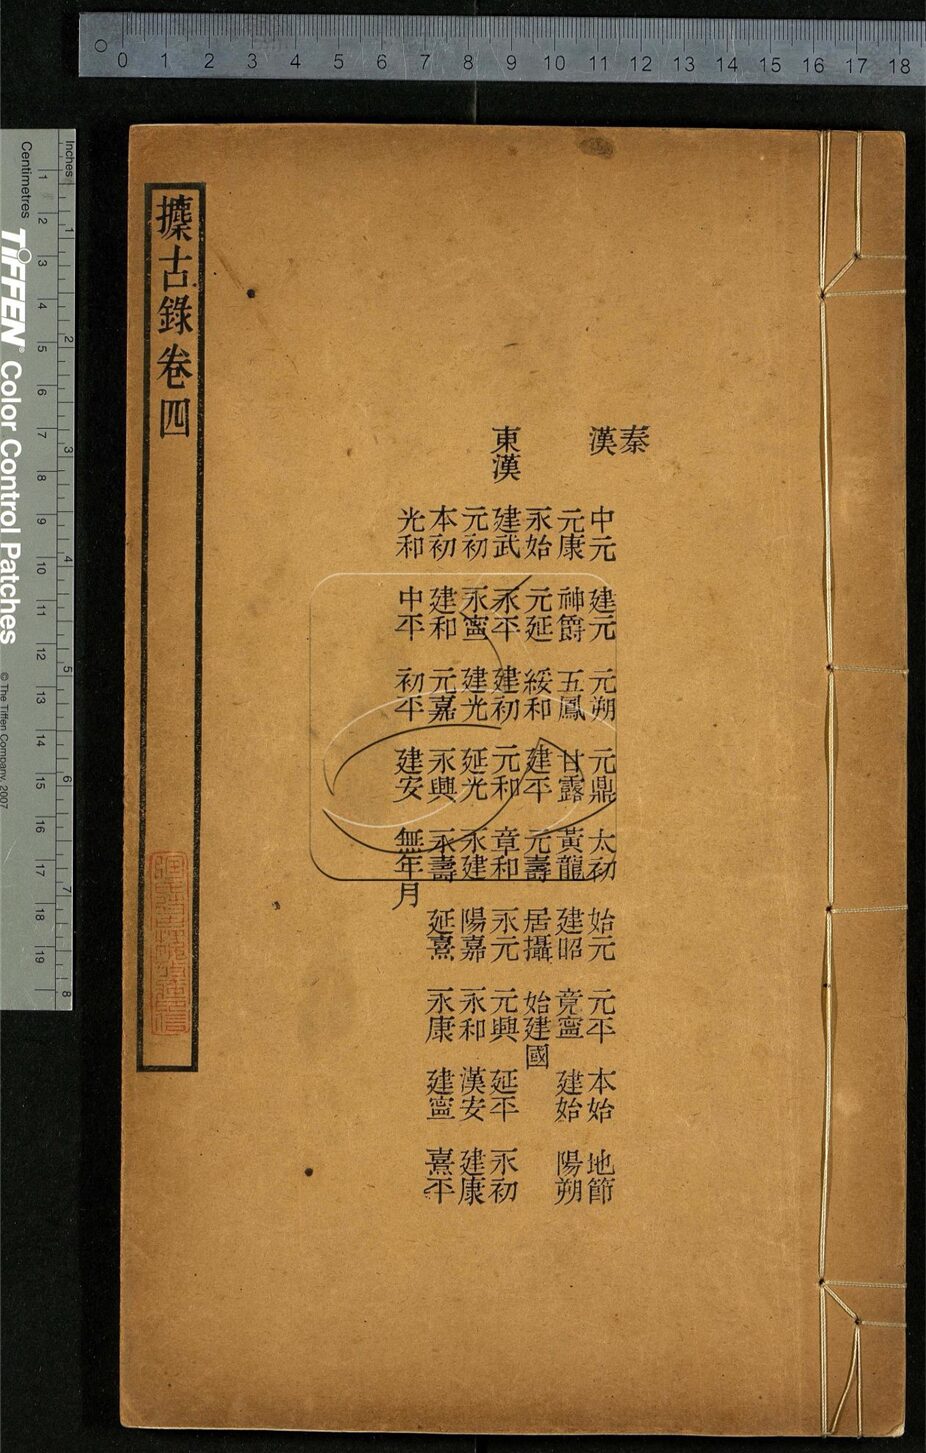 攗古錄卷四
秦
漢
中元 建元 元朔 元鼎 太初 始元 元平 本始 地節
元康 神爵 五鳳 甘露 黃龍 建昭 竟寧 建始 陽朔
永始 元延 綏和 建平 元壽 居攝 始建國
東漢
建武 永平 建初 元和 章和 永元 元興 延平 永初
元初 永寧 建光 延光 永建 陽嘉 永和 漢安 建康
本初 建和 元嘉 永興 永壽 延熹 永康 建寧 熹平
光和 中平 初平 建安 無年月
0 0 1 2 3 4 5 6 7 8 9 10 11 12 13 14 15 16 17 18
Inches 1 2 3 4 5 6 7 8
Centimetres 1 2 3 4 5 6 7 8 9 10 11 12 13 14 15 16 17 18 19
TIFFEN® Color Control Patches
© The Tiffen Company, 2007